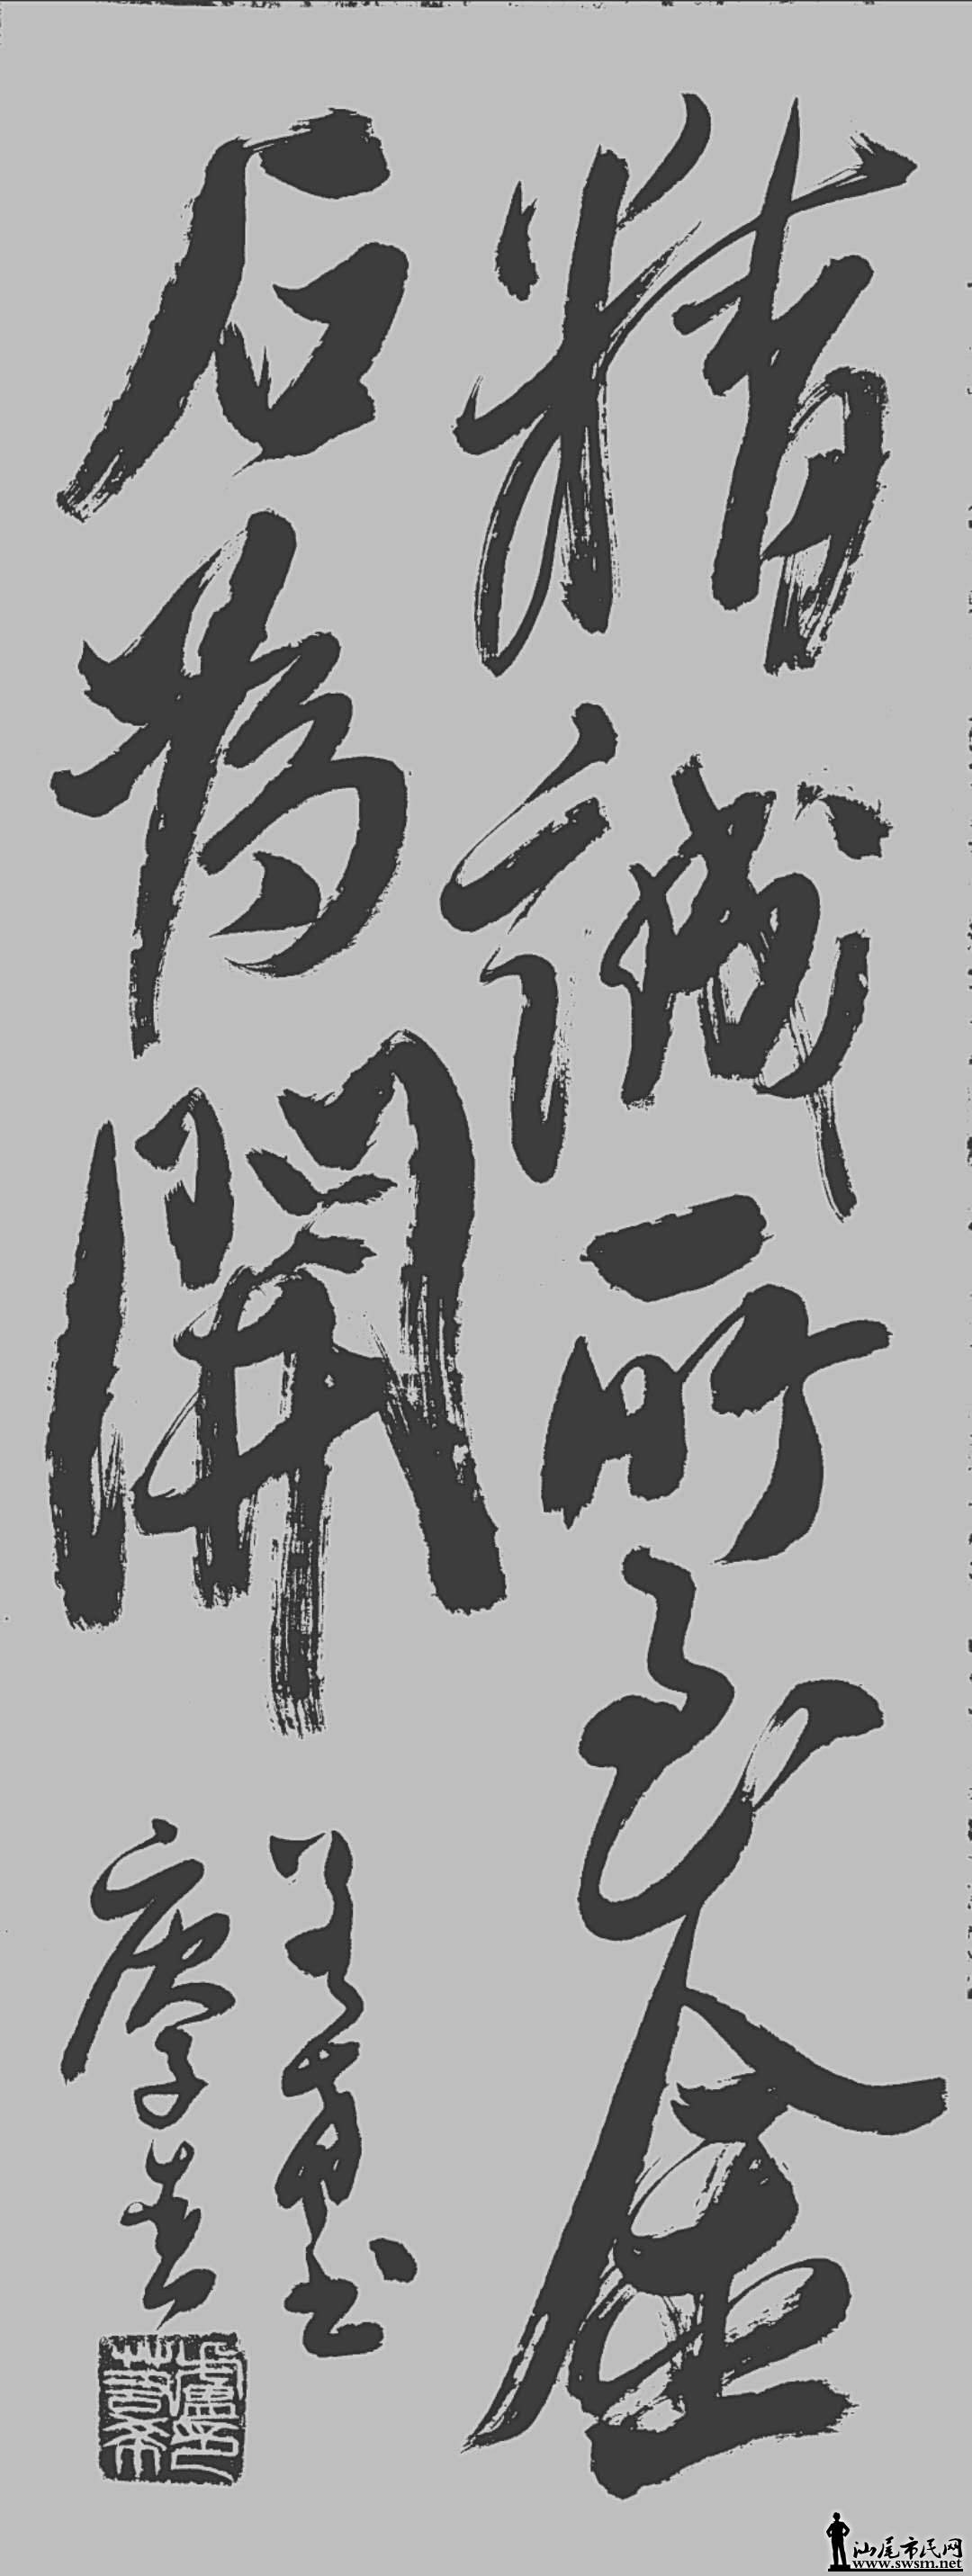 精誠所至金
石為開
盧印
汕尾市民网
www.swsm.net